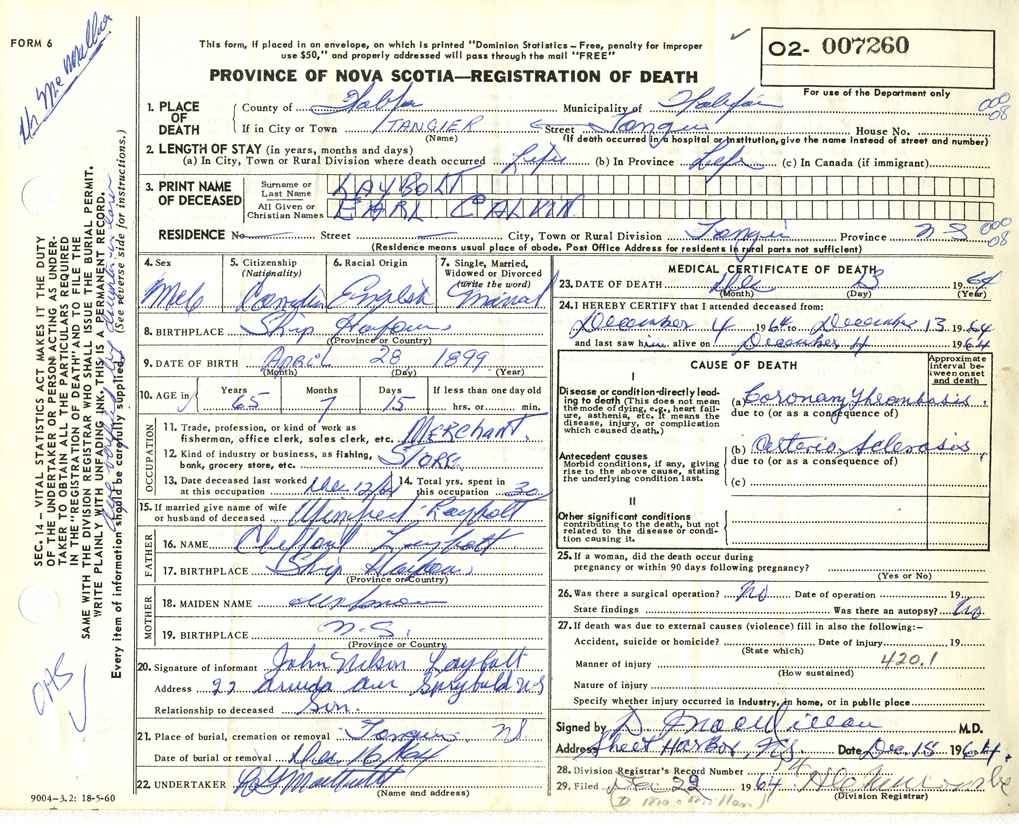 FORM 6
Dr McMillan
This form, if placed in an envelope, on which is printed "Dominion Statistics – Free, penalty for improper
use $50," and properly addressed will pass through the mail "FREE"
PROVINCE OF NOVA SCOTIA—REGISTRATION OF DEATH
O2- 007260
For use of the Department only
1. PLACE OF DEATH
County of Halifax Municipality of Halifax
000
08
If in City or Town TANGIER Street Tangier House No.
(Name) (If death occurred in a hospital or institution, give the name instead of street and number)
2. LENGTH OF STAY (in years, months and days)
(a) In City, Town or Rural Division where death occurred Life (b) In Province Life (c) In Canada (if immigrant)
3. PRINT NAME OF DECEASED
Surname or Last Name LAYBOLT
All Given or Christian Names EARL CALVIN
RESIDENCE No Street City, Town or Rural Division Tangier Province N S
000
08
(Residence means usual place of abode. Post Office Address for residents in rural parts not sufficient)
4. Sex
5. Citizenship (Nationality)
6. Racial Origin
7. Single, Married, Widowed or Divorced (write the word)
English
8. BIRTHPLACE Ship Harbour
(Province or Country)
9. DATE OF BIRTH April 28 1899
(Month) (Day) (Year)
10. AGE in
Years 65
Months 7
Days 15
If less than one day old
hrs. or min.
OCCUPATION
11. Trade, profession, or kind of work as
fisherman, office clerk, sales clerk, etc. MERCHANT.
12. Kind of industry or business, as fishing,
bank, grocery store, etc. STORE.
13. Date deceased last worked at this occupation Dec 12/64
14. Total yrs. spent in this occupation 30
15. If married give name of wife
or husband of deceased Winifred Laybolt
FATHER
16. NAME Clifford Laybolt
17. BIRTHPLACE Ship Harbour
(Province or Country)
MOTHER
18. MAIDEN NAME unknown
19. BIRTHPLACE N.S.
(Province or Country)
20. Signature of informant John Nelson Laybolt
Address 22 Aruda Ave Spryfield N S
Relationship to deceased Son.
21. Place of burial, cremation or removal Tangier NS
Date of burial or removal Dec 16/64
22. UNDERTAKER
(Name and address)
9004–3.2: 18-5-60
MEDICAL CERTIFICATE OF DEATH
23. DATE OF DEATH Dec 13 1964
(Month) (Day) (Year)
24. I HEREBY CERTIFY that I attended deceased from:
December 4 1964 to December 13 1964
and last saw him alive on December 4 1964
CAUSE OF DEATH
Approximate interval between onset and death
I
Disease or condition directly leading to death (This does not mean the mode of dying, e.g., heart failure, asthenia, etc. It means the disease, injury, or complication which caused death.)
(a) Coronary Thrombosis
due to (or as a consequence of)
(b) Arterio Sclerosis
due to (or as a consequence of)
Antecedent causes
Morbid conditions, if any, giving rise to the above cause, stating the underlying condition last.
(c)
II
Other significant conditions
contributing to the death, but not related to the disease or condition causing it.
25. If a woman, did the death occur during
pregnancy or within 90 days following pregnancy?
(Yes or No)
26. Was there a surgical operation? No Date of operation 19
State findings Was there an autopsy? No
27. If death was due to external causes (violence) fill in also the following:-
Accident, suicide or homicide? Date of injury 19
(State which)
Manner of injury 420.1
(How sustained)
Nature of injury
Specify whether injury occurred in industry, in home, or in public place
Signed by D. MacMillan M.D.
Address Sheet Harbor, N.S. Date Dec. 18 1964.
28. Division Registrar's Record Number
29. Filed Dec 22 1964
(Division Registrar)
(D. MacMillan)
SEC. 14 – VITAL STATISTICS ACT MAKES IT THE DUTY
OF THE UNDERTAKER OR PERSON ACTING AS UNDER-
TAKER TO OBTAIN ALL THE PARTICULARS REQUIRED
IN THE "REGISTRATION OF DEATH" AND TO FILE THE
SAME WITH THE DIVISION REGISTRAR WHO SHALL ISSUE THE BURIAL PERMIT.
WRITE PLAINLY WITH UNFADING INK. THIS IS A PERMANENT RECORD.
Every item of information should be carefully supplied. (See reverse side for instructions.)